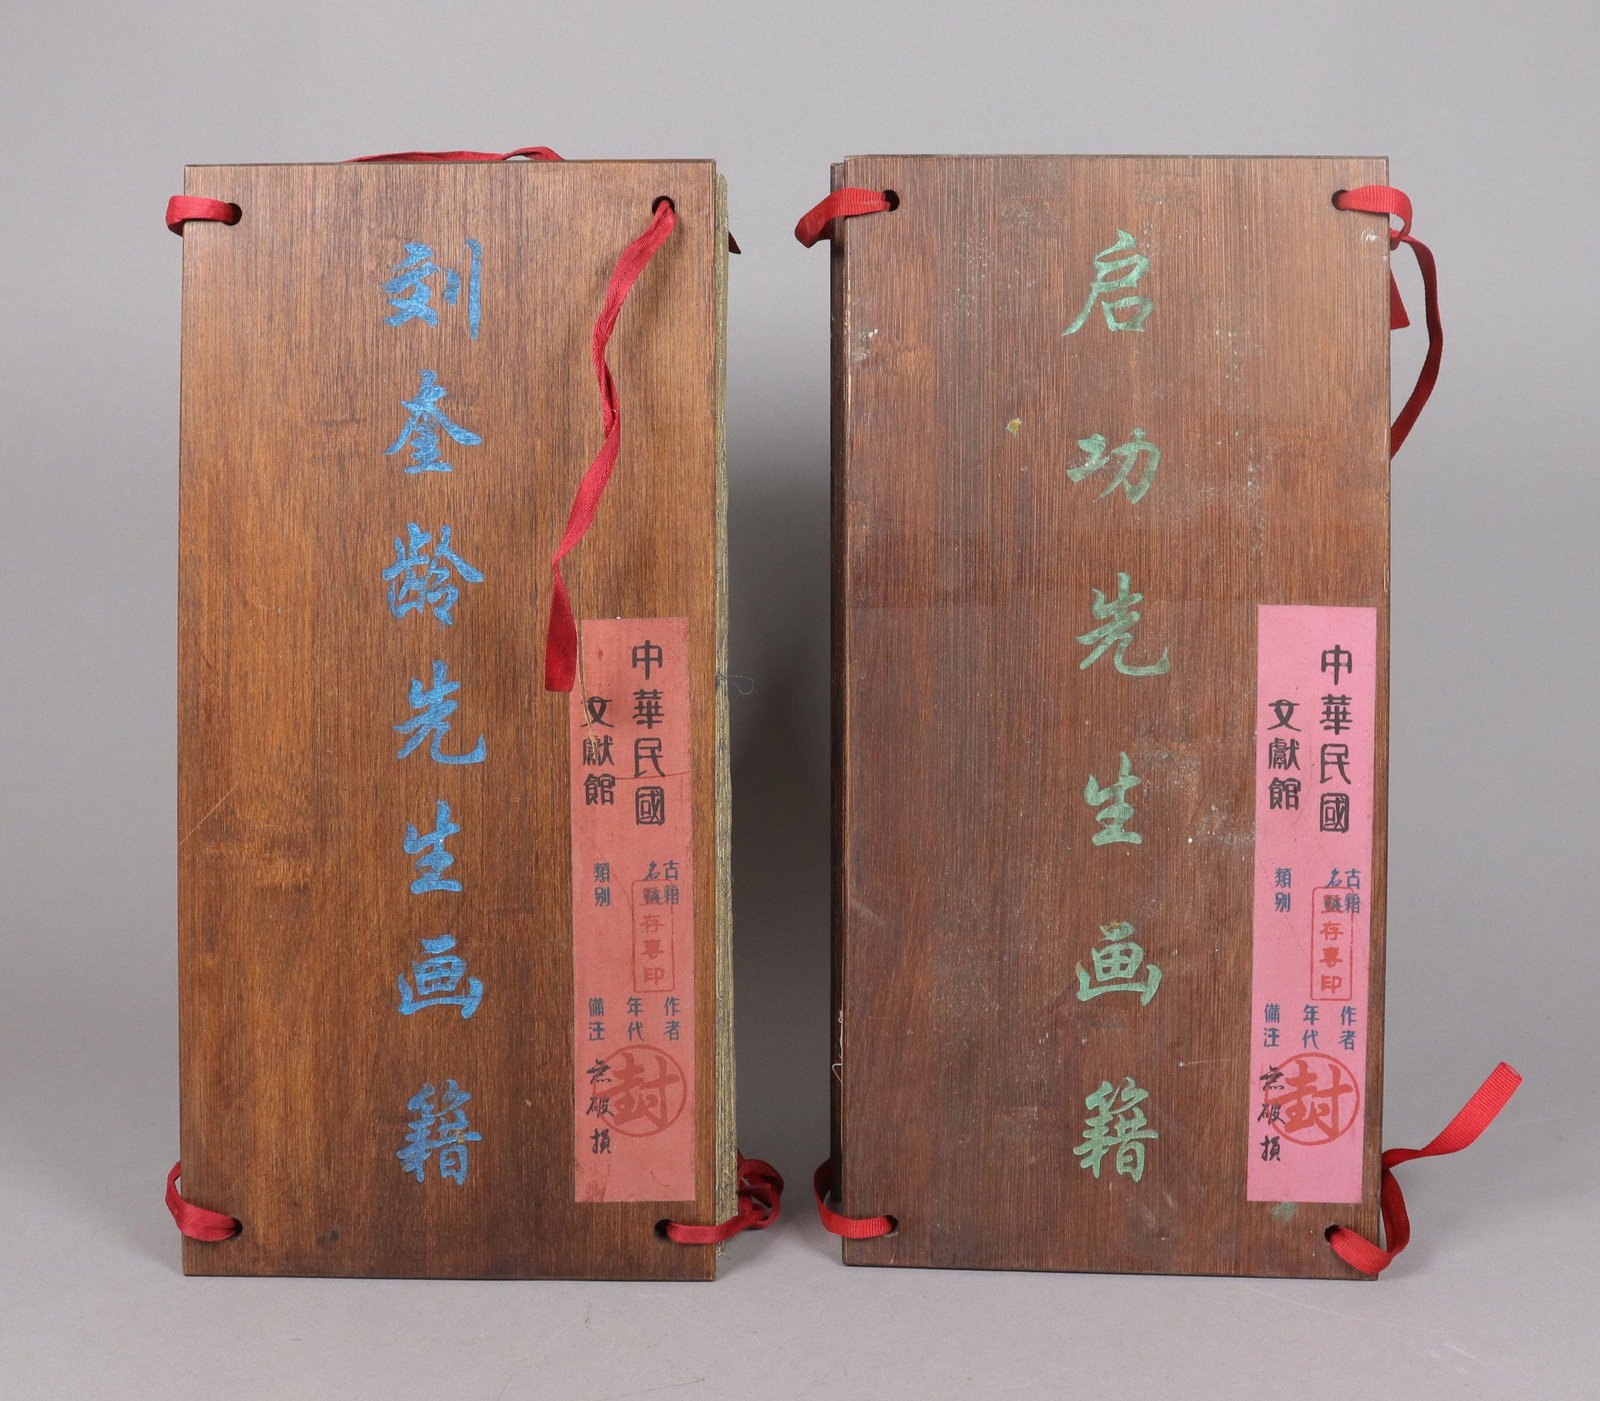 刘奎龄先生画籍
中華民國
文獻館
古籍
名
類别
鑒存專印
作者
年代
備注
無破損
封
启功先生画籍
中華民國
文獻館
古籍
名
類别
鑒存專印
作者
年代
備注
無破損
封